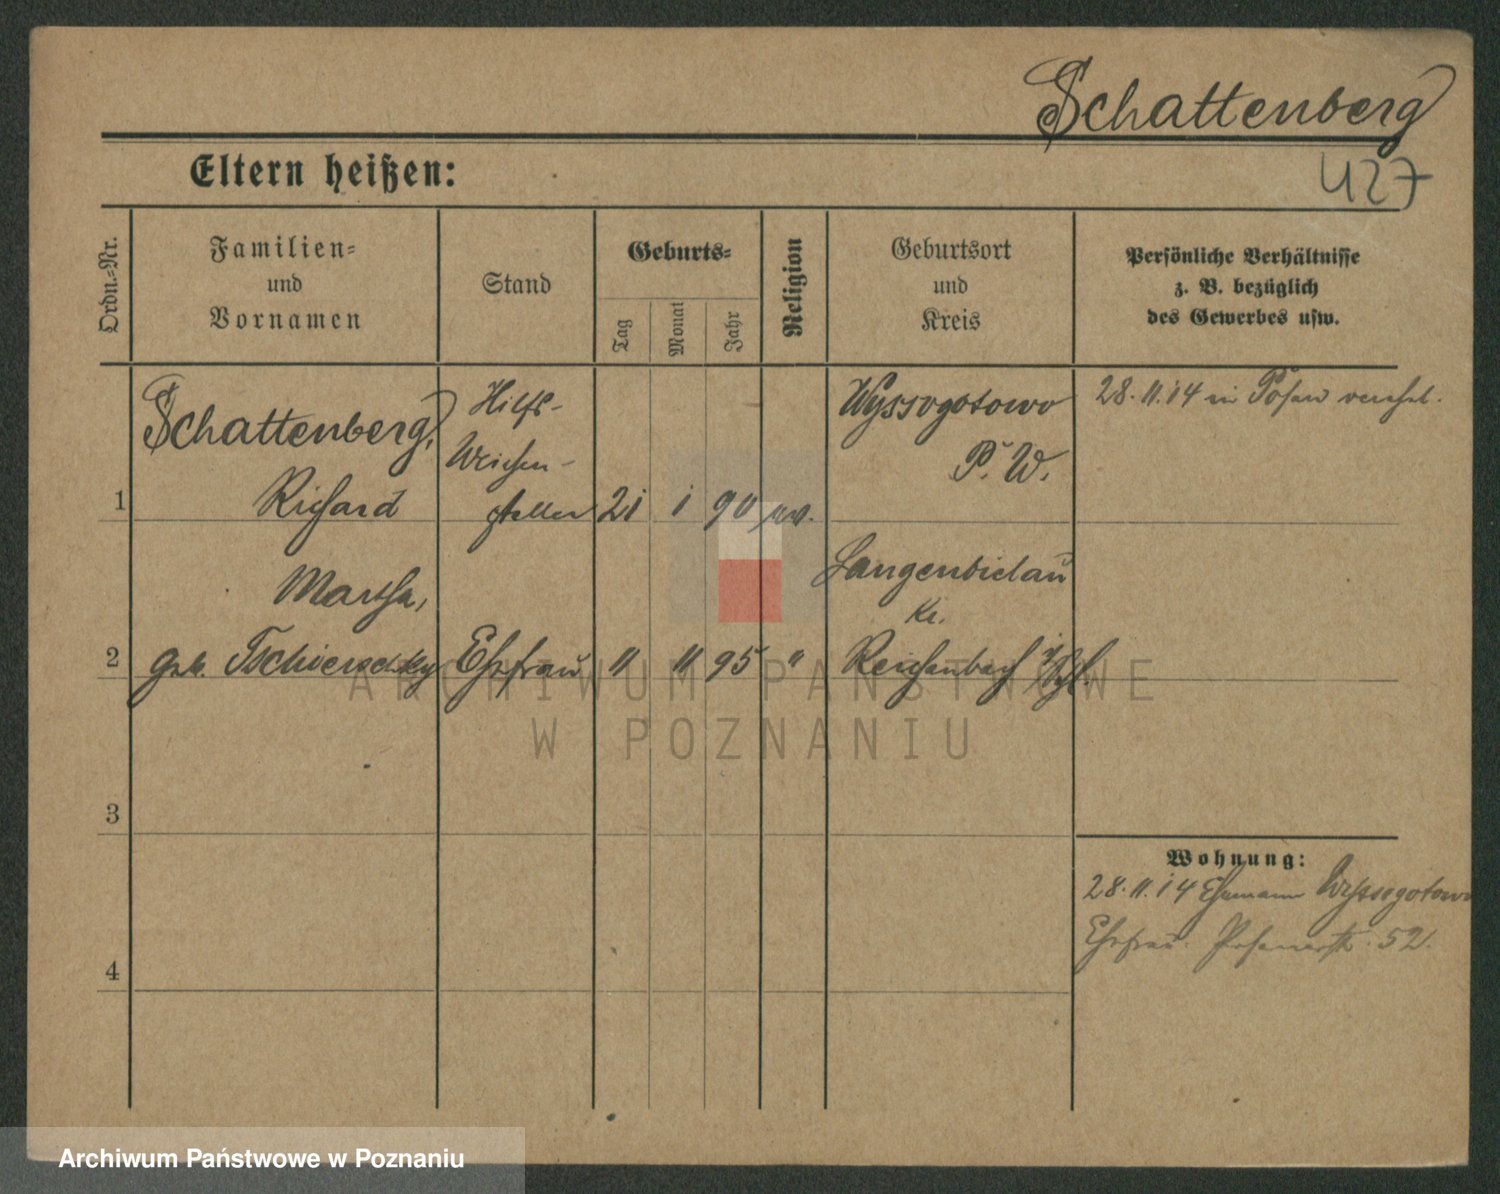 Schattenberg
427
Eltern heißen:
Ordn.=Nr.
Familien=
und
Vornamen
Stand
Geburts=
Tag
Monat
Jahr
Religion
Geburtsort
und
Kreis
Persönliche Verhältnisse
z. B. bezüglich
des Gewerbes usw.
1
Schattenberg,
Richard
Hilfs-
Weichen-
steller
21
1
90
ev.
Wyssogotowo
P. W.
28.11.14 in Posen verehel.
2
Martha,
geb. Tschierschky
Ehefrau
11
11
95
"
Langenbielau
Kr.
Reichenbach i/Schl.
3
4
Wohnung:
28.11.14 Ehemann Wyssogotowo
Ehefrau. Posenerstr. 52.
ARCHIWUM PAŃSTWOWE
W POZNANIU
Archiwum Państwowe w Poznaniu